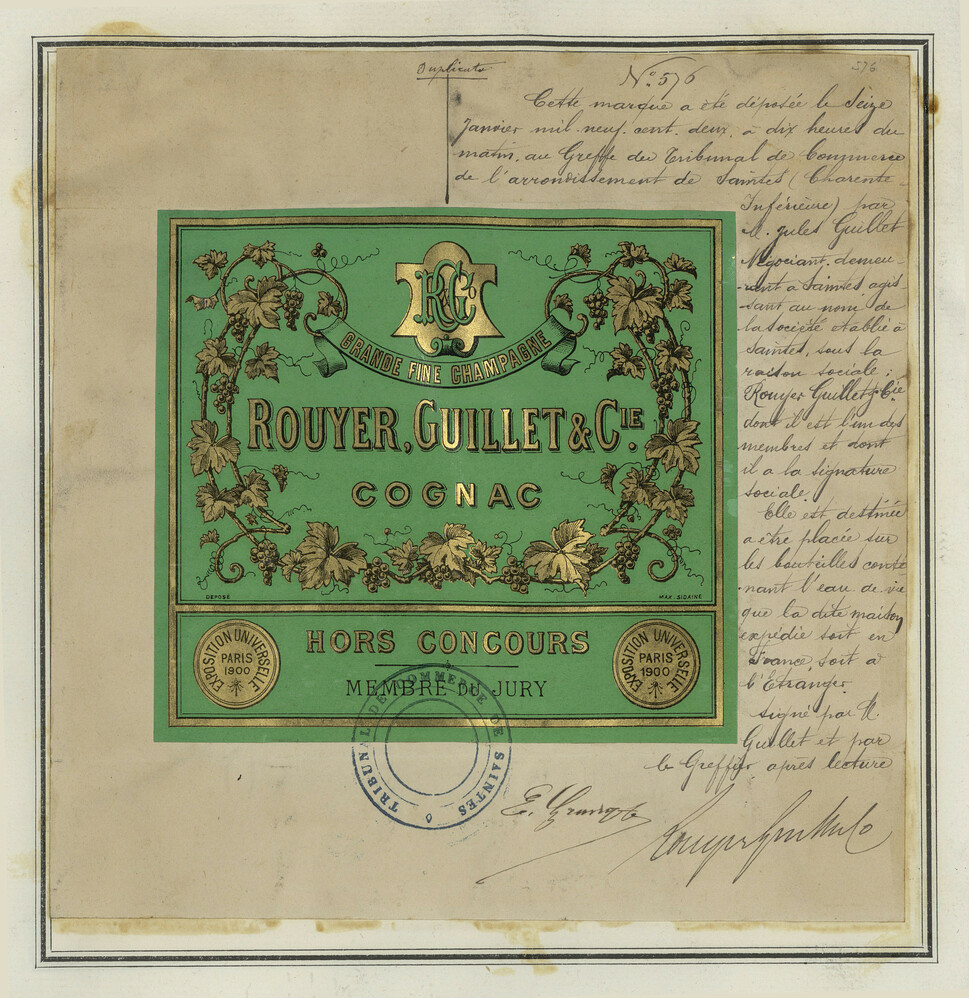 Duplicata
N° 576
576
Cette marque a été déposée le Seize
Janvier mil neuf cent deux, à dix heures du
matin, au Greffe du Tribunal de Commerce
de l'arrondissement de Saintes (Charente
Inférieure) par
M. Jules Guillet
Négociant, demeu-
-rant à Saintes agis
sant au nom de
la Société établie à
Saintes, sous la
raison sociale :
Rouyer Guillet & Cie
dont il est l'un des
membres et dont
il a la signature
sociale.
Elle est destinée
a être placée sur
les bouteilles conte
-nant l'eau de vie
que la dite maison
expédie soit en
France, soit à
l'Etranger.
Signé par M.
Guillet et par
le Greffier après lecture
RGC
GRANDE FINE CHAMPAGNE
ROUYER, GUILLET & CIE.
COGNAC
DÉPOSÉ
MAX. SIDAINE
HORS CONCOURS
MEMBRE DU JURY
EXPOSITION UNIVERSELLE
PARIS
1900
EXPOSITION UNIVERSELLE
PARIS
1900
TRIBUNAL DE COMMERCE DE SAINTES
Rouyer Guillet & Co